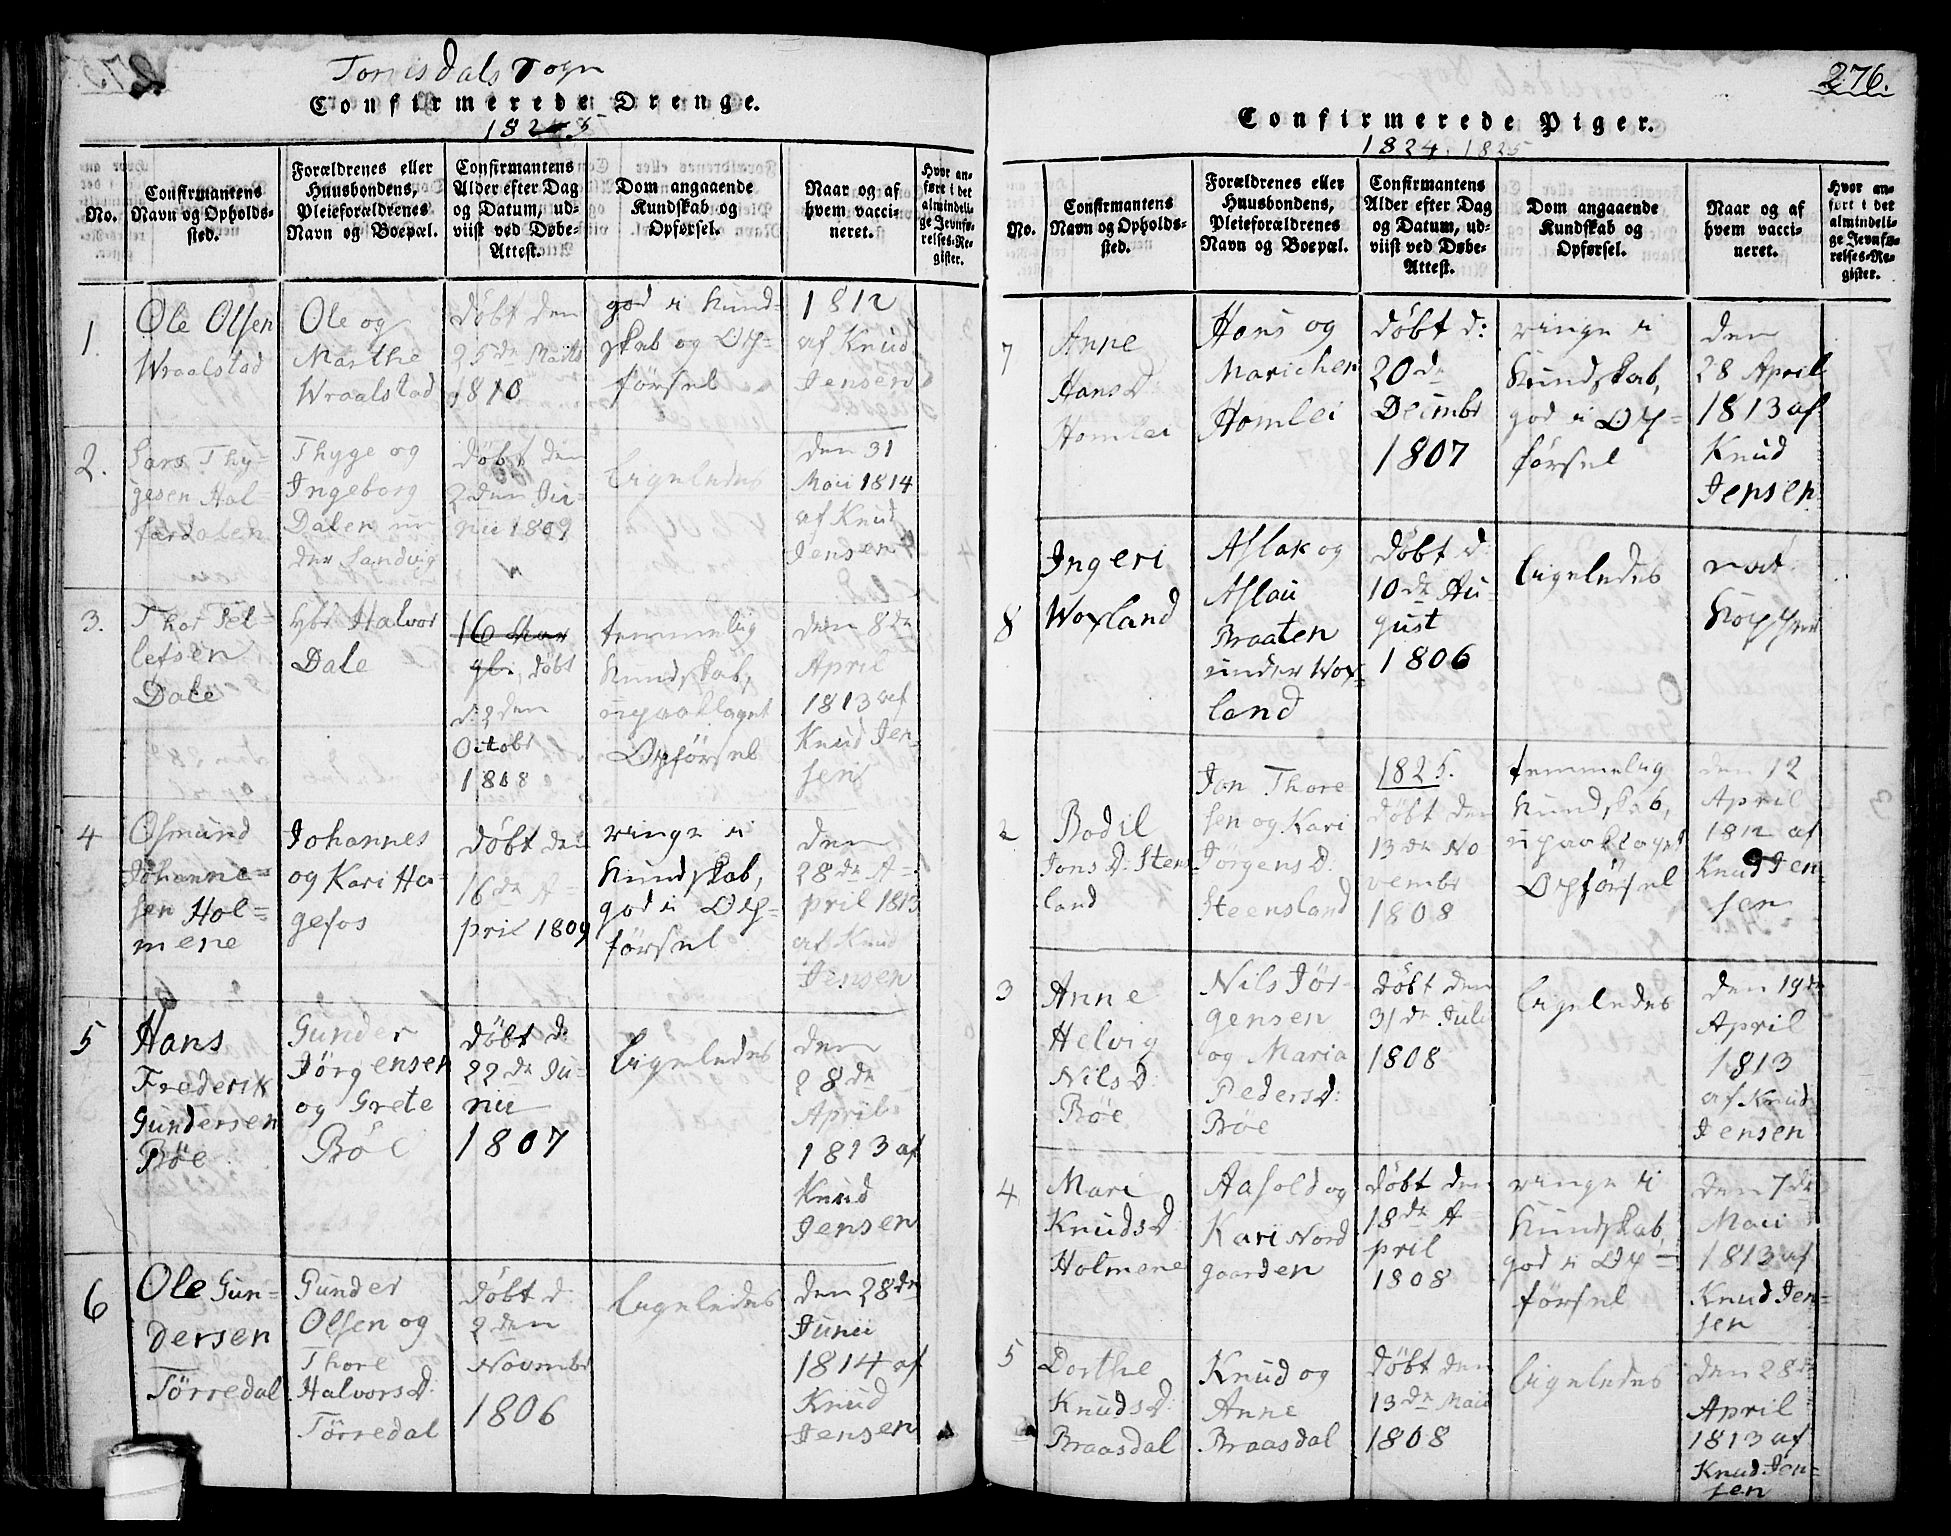 Torrisdals Sogn
Confirmerede Drenge.
1825
No.
Confirmantens
Navn og Opholds-
sted.
Forældrenes eller
Huusbondens,
Pleieforældrenes
Navn og Boepæl.
Confirmantens
Alder efter Dag
og Datum, ud-
viist ved Døbe-
Attest.
Dom angaaende
Kundskab og
Opførsel.
Naar og af
hvem vacci-
neret.
Hvor an-
ført i det
almindeli-
ge Jevnfø-
relses-Re-
gister.
1.
Ole Olsen
Wraalstad
Ole og
Marthe
Wraalstad
døbt den
25de Marts
1810
god i Kund-
skab og Op-
førsel
1812
af Knud
Jensen
2.
Lars Thy-
gesen Hal-
fardalen
Thyge og
Ingeborg
Dalen un
der Sandvig
døbt den
2den Ju-
nii 1809
Ligeledes
den 31
Maii 1814
af Knud
Jensen
3.
Thor Tel-
lefsen
Dale
Halvor
Dale
døbt
d: 2den
Octobr
1808
temmelig
Kundskab,
upaaklaget
Opførsel
den 8de
April
1813 af
Knud Jen-
sen
4
Osmund
Johanne-
sen Hol-
mene
Johannes
og Kari Ha-
gefos
døbt den
16de A-
pril 1809
ringe i
Kundskab,
god i Op-
førsel
den
28de A-
pril 1813
af Knud
Jensen
5
Hans
Frederik
Gundersen
Bøe
Gunder
Jørgensen
og Grete
Bøe
døbt d:
22de Ju-
nii
1807
Ligeledes
den
28de
April
1813 af
Knud
Jensen
6
Ole Gun-
dersen
Tørredal
Gunder
Olsen og
Thore
Halvorsd:
Tørredal
døbt d:
2den
Novembr
1806
Ligeledes
den 28de
Junii
1814 af
Knud
Jensen
276.
Confirmerede Piger.
1824. 1825
No.
Confirmantens
Navn og Opholds-
sted.
Forældrenes eller
Huusbondens,
Pleieforældrenes
Navn og Boepæl.
Confirmantens
Alder efter Dag
og Datum, ud-
viist ved Døbe-
Attest.
Dom angaaende
Kundskab og
Opførsel.
Naar og af
hvem vacci-
neret.
Hvor an-
ført i det
almindeli-
ge Jevnfø-
relses-Re-
gister.
7
Anne
Hansd:
Homlei
Hans og
Marichen
Homlei
døbt d:
20de
Decimbr
1807
ringe i
Kundskab,
god i Op-
førsel
den
28 April
1813 af
Knud
Jensen
8
Ingeri
Woxland
Aslak og
Aslau
Braaten
under Wox-
land
døbt d:
10de Au-
gust
1806
Ligeledes
nat:
Kopper
2
Bodil
Jonsd: Stens
land
Jon Thore
sen og Kari
Jørgensd:
Steensland
1825.
døbt den
13de No
vembr
1808
temmelig
Kundskab,
upaaklaget
Opførsel
den 12
April
1812 af
Knud Jen-
sen
3
Anne
Helvig
Nilsd:
Bøe
Nils Jør-
gensen
og Maria
Pedersd:
Bøe
døbt den
31de Juli
1808
Ligeledes
den 19de
April
1813
af Knud
Jensen
4
Mari
Knudsd:
Holmene
Aasold og
Kari Nord
gaarden
døbt den
18de A-
pril
1808
ringe i
Kundskab,
god i Op-
førsel
den 7de
Maii
1813 af
Knud Jen-
sen
5
Dorthe
Knudsd:
Braasdal
Knud og
Anne
Braasdal
døbt den
13de Maii
1808
Ligeledes
den 28de
April
1813 af
Knud Jen-
sen